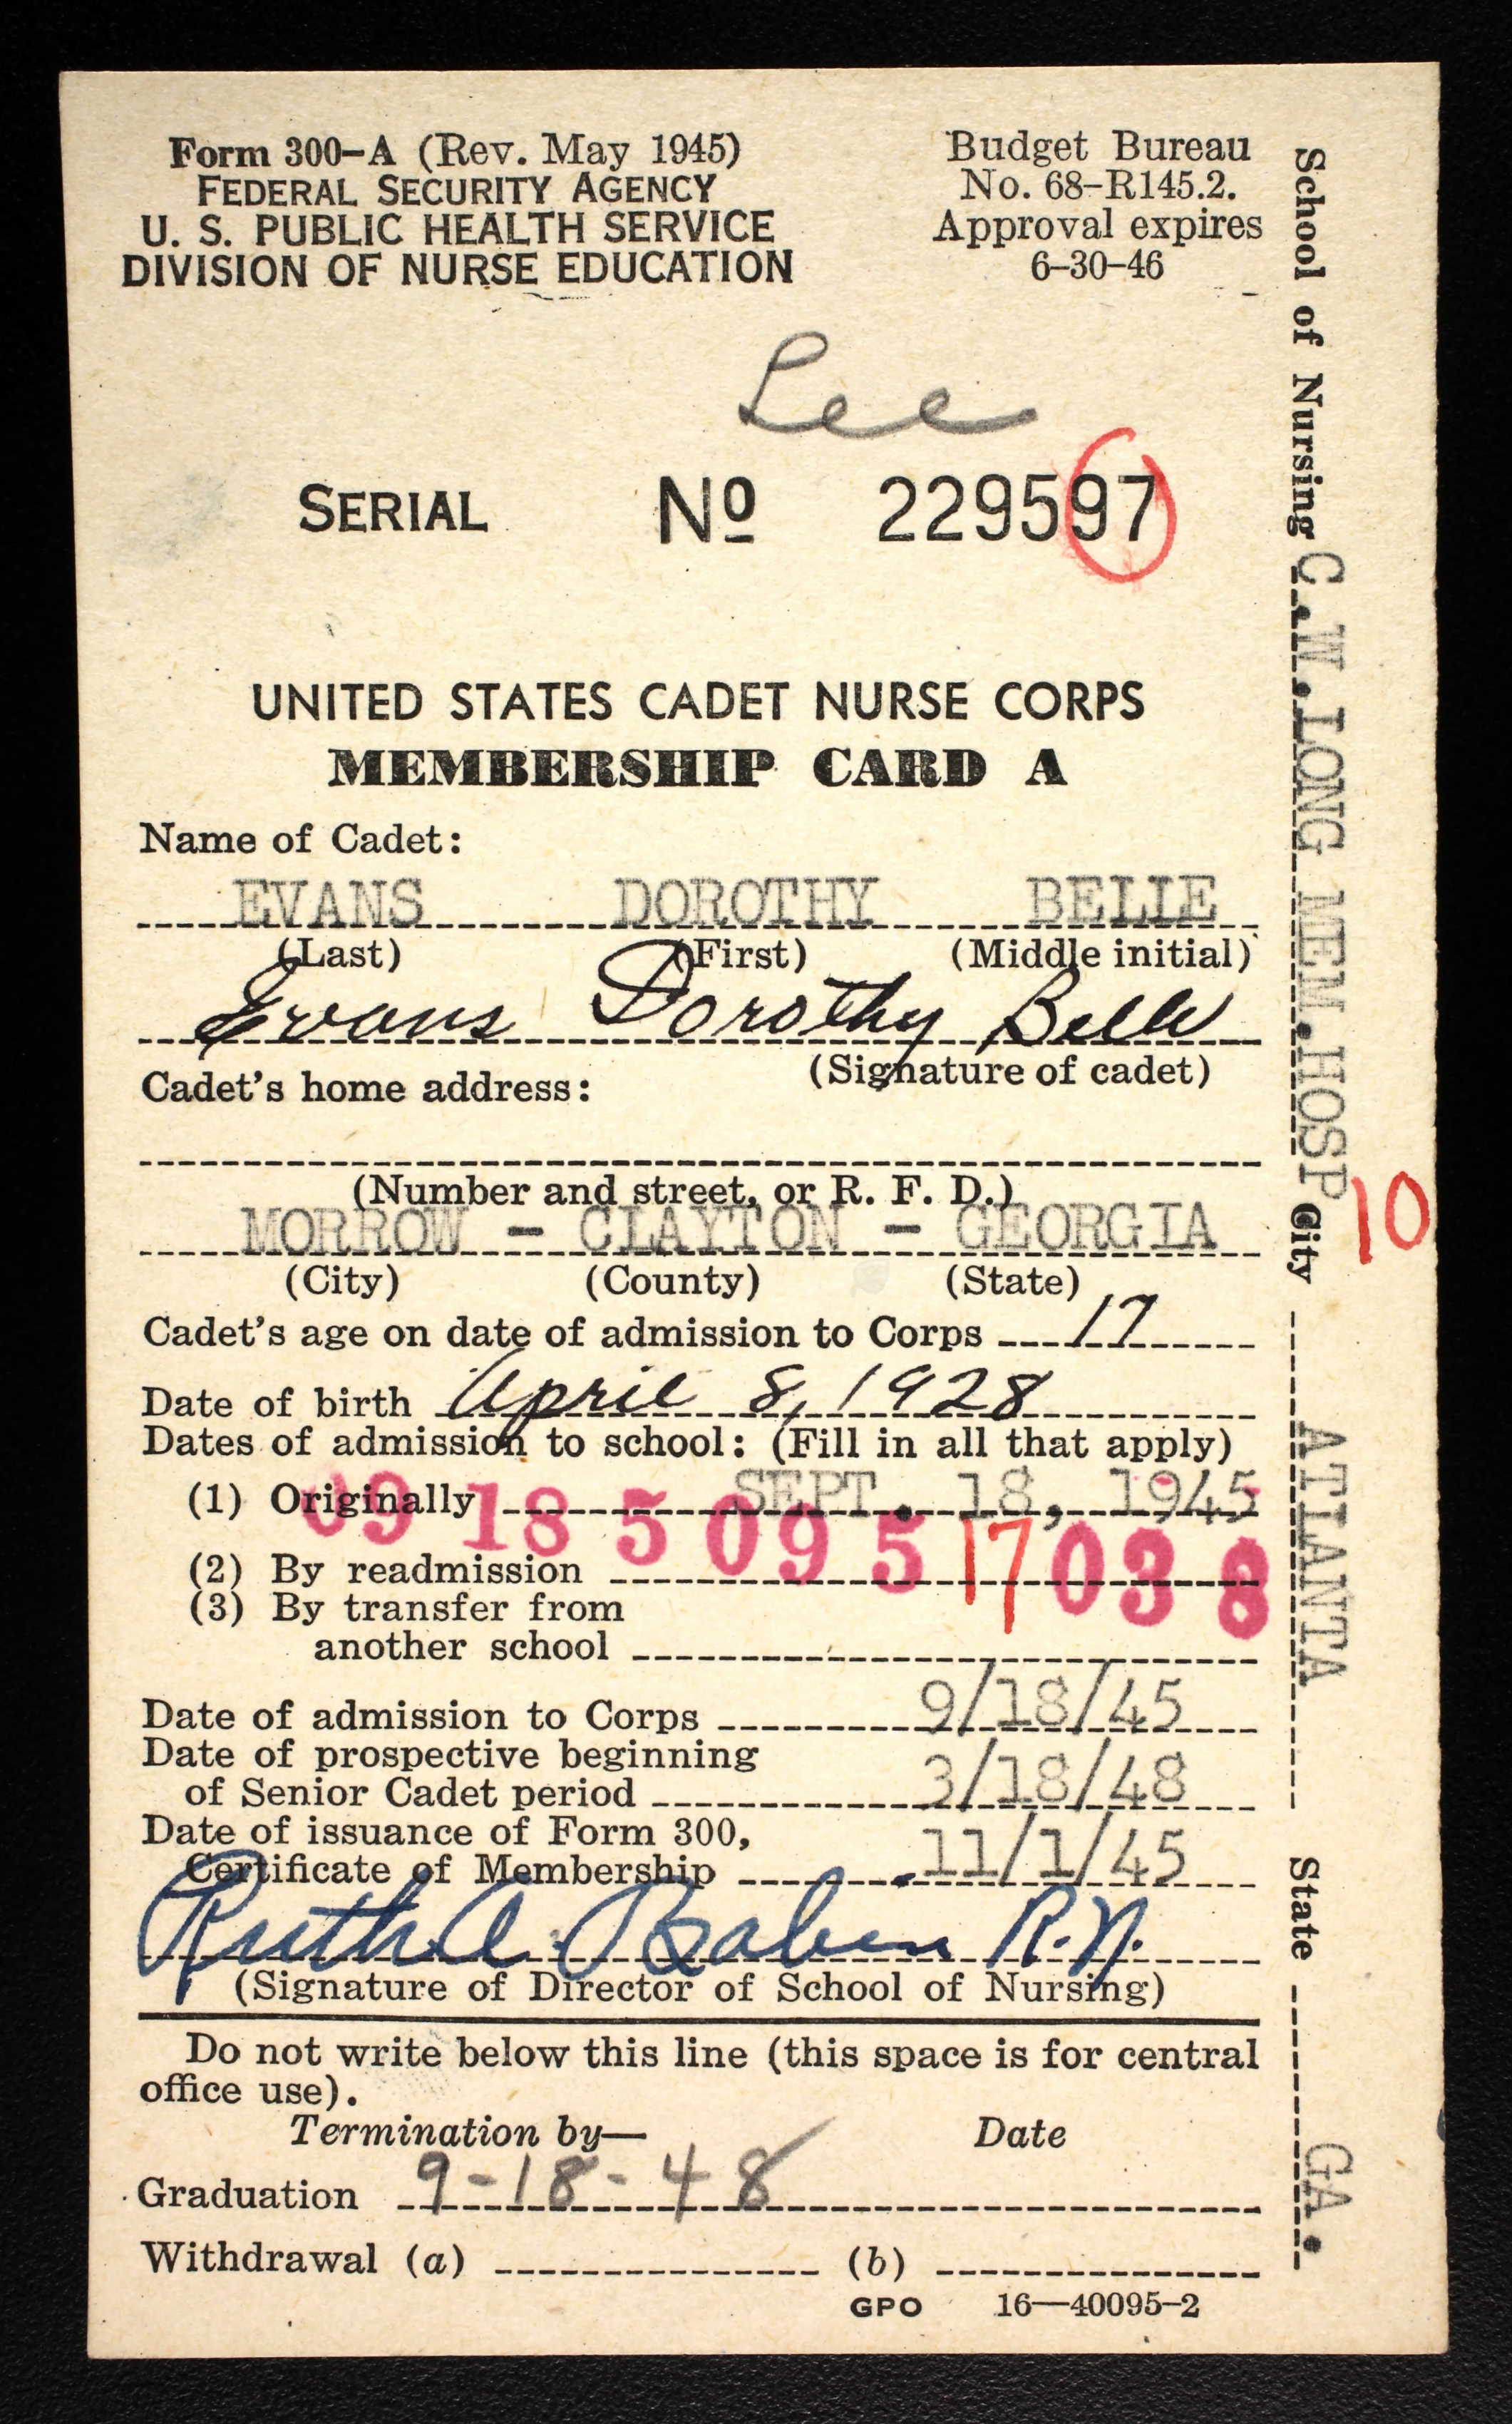 Form 300-A (Rev. May 1945)
FEDERAL SECURITY AGENCY
U. S. PUBLIC HEALTH SERVICE
DIVISION OF NURSE EDUCATION
Budget Bureau
No. 68-R145.2.
Approval expires
6-30-46
Lee
SERIAL No 229597
UNITED STATES CADET NURSE CORPS
MEMBERSHIP CARD A
Name of Cadet:
EVANS DOROTHY BELLE
(Last) (First) (Middle initial)
Evans Dorothy Belle
(Signature of cadet)
Cadet's home address:
(Number and street, or R. F. D.)
MORROW - CLAYTON - GEORGIA
(City) (County) (State)
Cadet's age on date of admission to Corps 17
Date of birth April 8, 1928
Dates of admission to school: (Fill in all that apply)
(1) Originally SEPT. 18, 1945
09 18 5 09 5 17 03 8
(2) By readmission
(3) By transfer from
another school
Date of admission to Corps 9/18/45
Date of prospective beginning
of Senior Cadet period 3/18/48
Date of issuance of Form 300,
Certificate of Membership 11/1/45
Ruth A. Baben R.N.
(Signature of Director of School of Nursing)
Do not write below this line (this space is for central
office use).
Termination by— Date
Graduation 9-18-48
Withdrawal (a) (b)
GPO 16—40095-2
School of Nursing C.W.LONG MEM.HOSP City ATLANTA State GA.
10